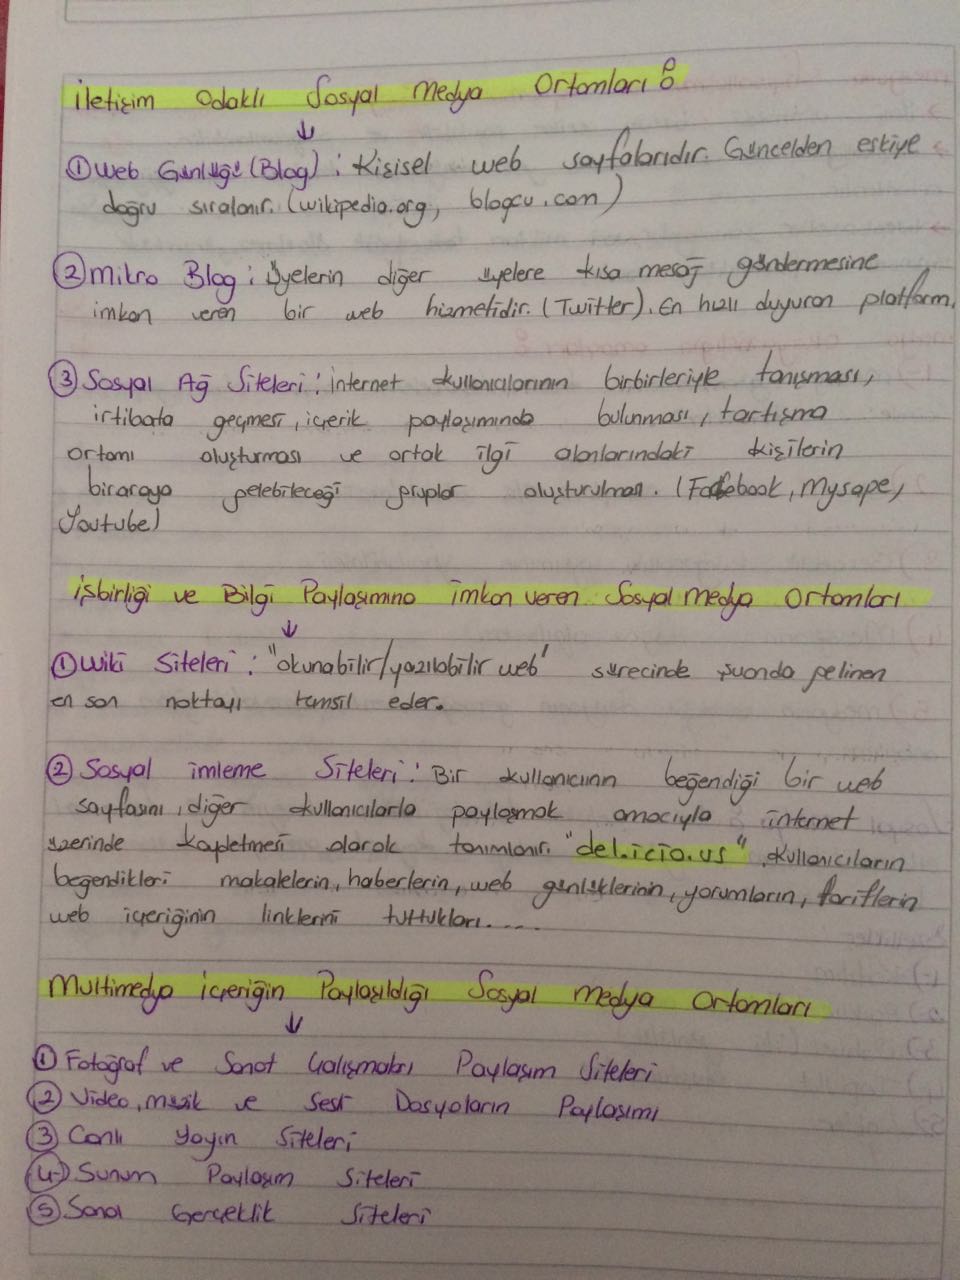 İletişim Odaklı Sosyal Medya Ortamları :
↓
① Web Günlüğü (Blog) : Kişisel web sayfalarıdır. Güncelden eskiye
doğru sıralanır. (wikipedia.org, blogcu.com)
② Mikro Blog : Üyelerin diğer üyelere kısa mesaj göndermesine
imkan veren bir web hizmetidir. (Twitter). En hızlı duyuran platform.
③ Sosyal Ağ Siteleri : İnternet kullanıcılarının birbirleriyle tanışması,
irtibata geçmesi, içerik paylaşımında bulunması, tartışma
ortamı oluşturması ve ortak ilgi alanlarındaki kişilerin
biraraya gelebileceği gruplar oluşturulması. (Facebook, Mysape,
Youtube)
İşbirliği ve Bilgi Paylaşımına imkan veren Sosyal medya Ortamları
↓
① Wiki Siteleri : "okunabilir/yazılabilir web" sürecinde şuanda gelinen
en son noktayı temsil eder.
② Sosyal imleme Siteleri : Bir kullanıcının beğendiği bir web
sayfasını, diğer kullanıcılarla paylaşmak amacıyla internet
üzerinde kaydetmesi olarak tanımlanır. "del.icio.us" kullanıcıların
beğendikleri makalelerin, haberlerin, web günlüklerinin, yorumların, tariflerin
web içeriğinin linklerini tuttukları....
Multimedya içeriğin Paylaşıldığı Sosyal medya Ortamları
↓
① Fotoğraf ve Sanat Çalışmaları Paylaşım Siteleri
② Video, müzik ve Sesli Dosyaların Paylaşımı
③ Canlı Yayın Siteleri
④ Sunum Paylaşım Siteleri
⑤ Sanal Gerçeklik Siteleri